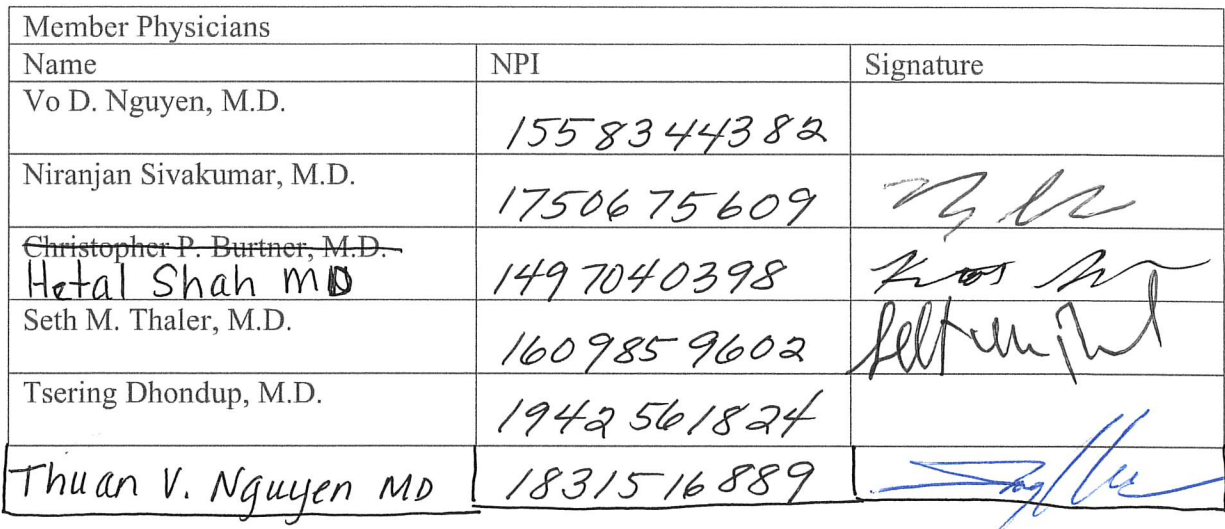 Member Physicians
Name NPI Signature
Vo D. Nguyen, M.D. 1558344382
Niranjan Sivakumar, M.D. 1750675609
Christopher P. Burtner, M.D.
Hetal Shah MD 1497040398
Seth M. Thaler, M.D. 1609859602
Tsering Dhondup, M.D. 1942561824
Thuan V. Nguyen MD 1831516889